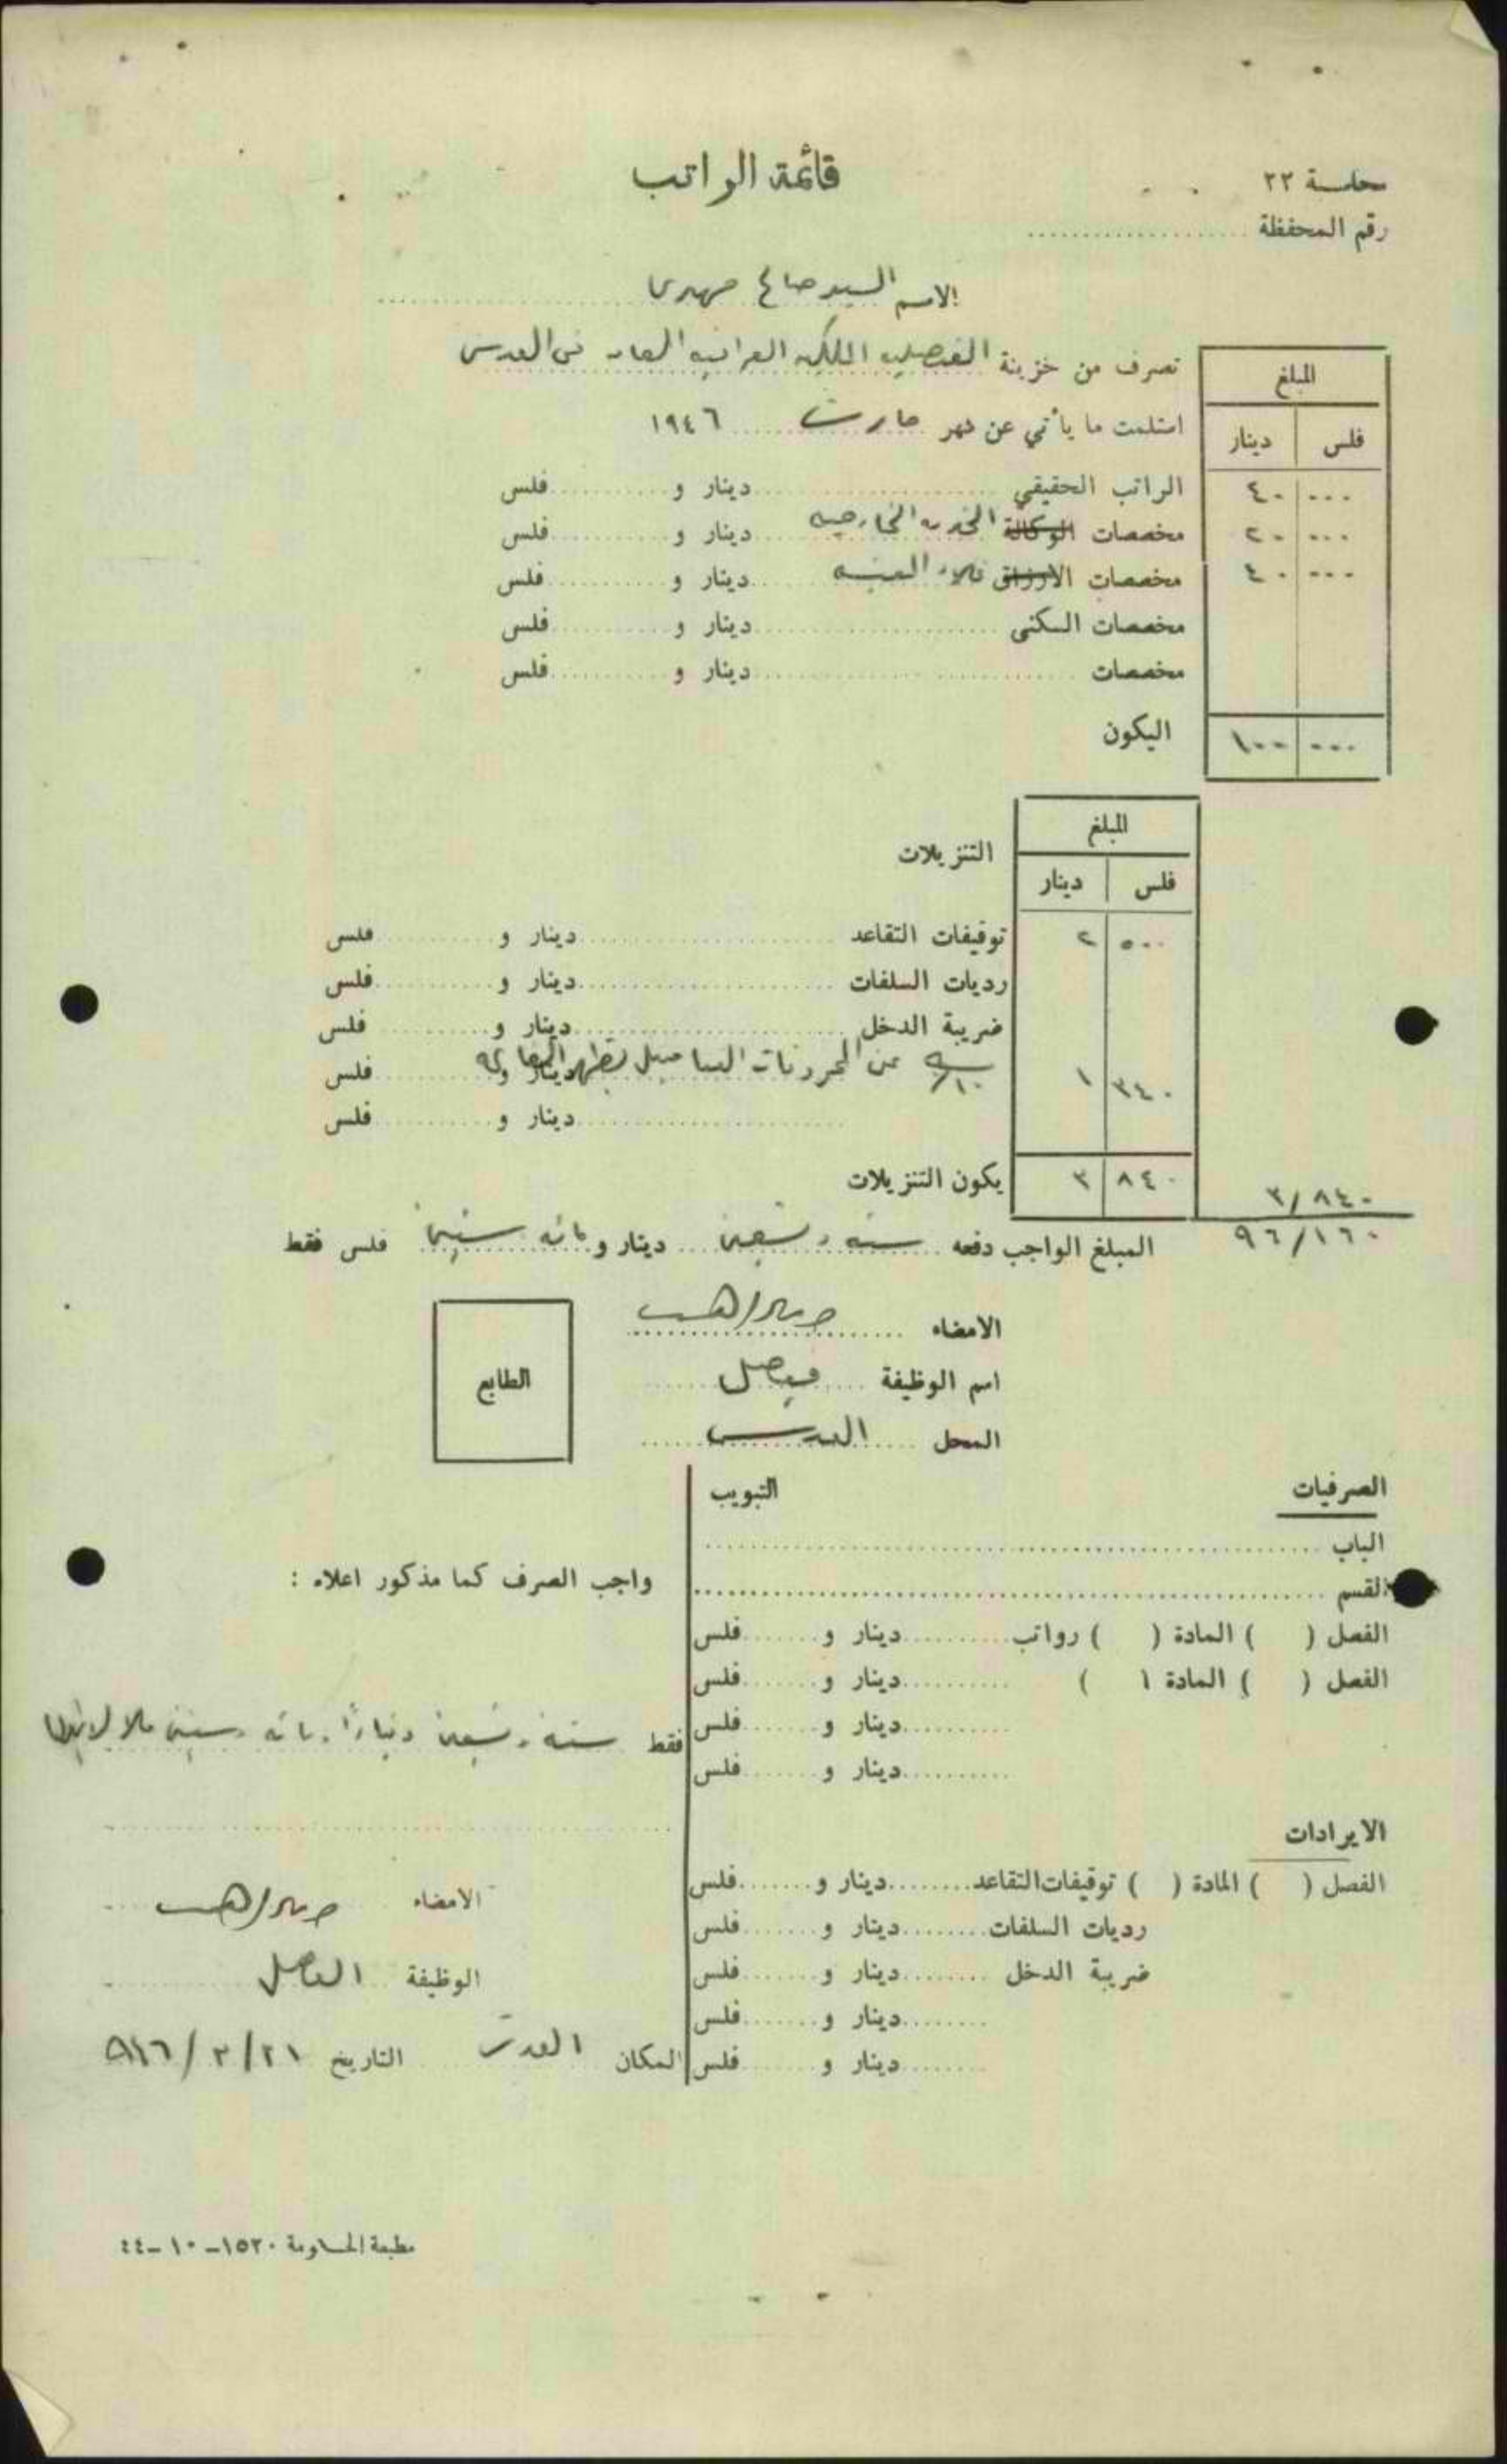 محاسبة ٢٢
قائمة الراتب
رقم المحفظة
الاسم السيد صالح مهدي
تصرف من خزينة القنصلية الملكية العراقية العامة في القدس
استلمت ما يأتي عن شهر مارت ١٩٤٦
المبلغ
فلس دينار
الراتب الحقيقي دينار و فلس ٠٠٠ ٤٠
مخصصات الوكالة الخدمة الخارجية دينار و فلس ٠٠٠ ٢٠
مخصصات الارزاق غلاء المعيشة دينار و فلس ٠٠٠ ٤٠
مخصصات السكنى دينار و فلس
مخصصات دينار و فلس
اليكون ٠٠٠ ١٠٠
المبلغ
التنزيلات
فلس دينار
توقيفات التقاعد دينار و فلس ٥٠٠ ٢
رديات السلفات دينار و فلس
ضريبة الدخل دينار و فلس
عن دينار و فلس ٣٤٠ ١
دينار و فلس
يكون التنزيلات ٨٤٠ ٣
٣/٨٤٠
المبلغ الواجب دفعه ستة وتسعين دينار و مائة وستين فلس فقط
٩٦/١٦٠
الامضاء
اسم الوظيفة قنصل
المحل القدس
الطابع
الصرفيات
التبويب
الباب
القسم
الفصل ( ) المادة ( ) رواتب دينار و فلس
الفصل ( ) المادة ( ) دينار و فلس
دينار و فلس
دينار و فلس
الايرادات
الفصل ( ) المادة ( ) توقيفات التقاعد دينار و فلس
رديات السلفات دينار و فلس
ضريبة الدخل دينار و فلس
دينار و فلس
دينار و فلس
واجب الصرف كما مذكور اعلاه :
فقط ستة وتسعين ديناراً ومائة وستين فلسا لا غير
الامضاء
الوظيفة القنصل
المكان القدس التاريخ ٢١/٣/٩٤٦
مطبعة الحكومة ١٥٢٠-١٠-٤٤